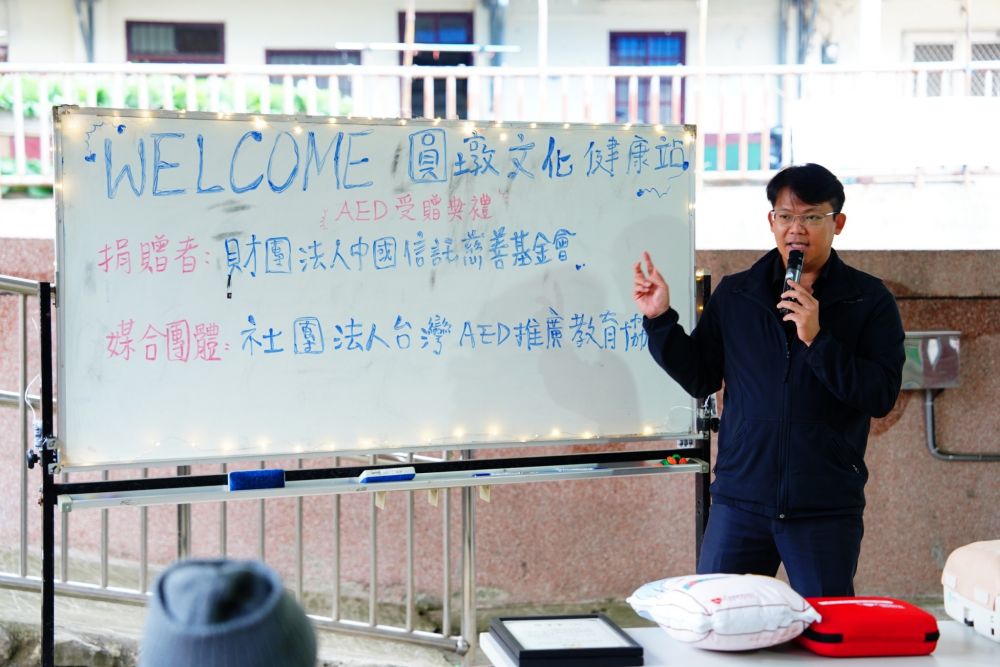 WELCOME 圓墩文化健康站
AED受贈典禮
捐贈者：財團法人中國信託慈善基金會
媒合團體：社團法人台灣AED推廣教育協